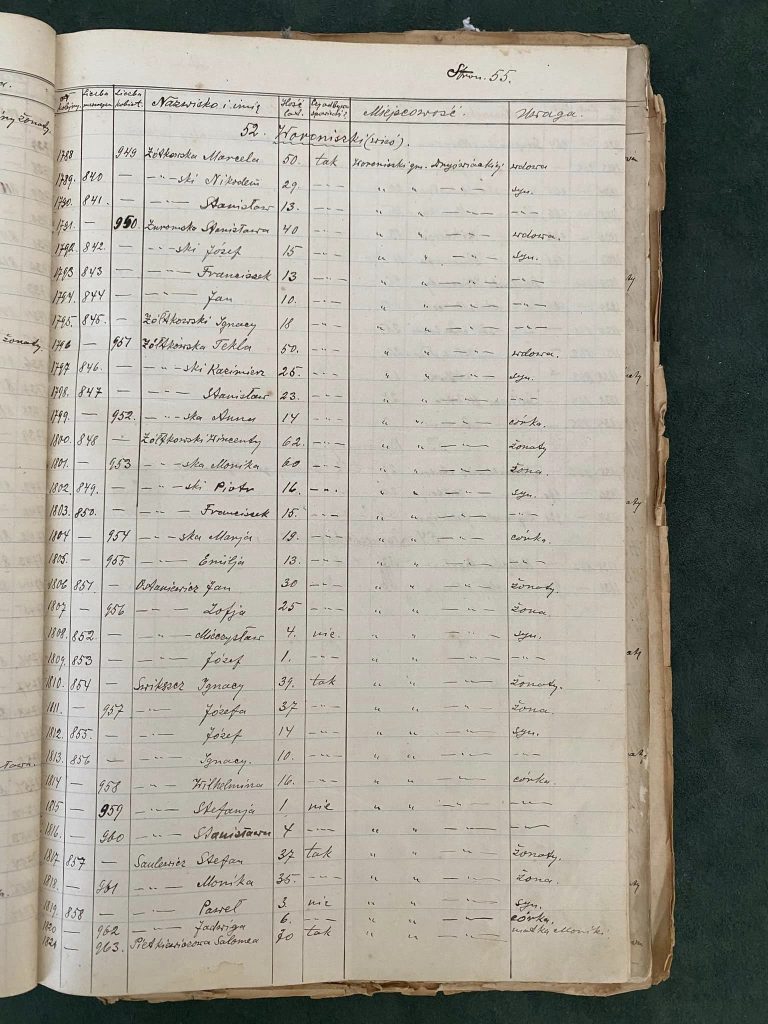 Stron. 55.
Liczba Liczba kobiet. Nazwisko i imię Ilość lat. Czy odbywa spowiedź Miejscowość. Uwaga.
52. Woroniszki (wieś).
1788 949 Żółtkowska Marcela 50. tak Woroniszki gm. wdowa
1789. 840 — — " — ski Nikodem 29. — " — " " — — syn.
1790. 841. — — " — Stanisław 13. — " — " " — — — " —
1791. — 950. Żuromska Stanisława 40 — " — " " — — wdowa.
1792. 842. — — " — ski Józef 15 — " — " " — — syn.
1793 843 — — " — Franciszek 13 — " — " " — — — " —
1794. 844 — — " — Jan 10. — " — " " — — — " —
1795. 845. — Żółtkowski Ignacy 18 — " — " " — — — " —
1796 — 951 Żółtkowska Tekla 50. — " — " " — — wdowa.
1797 846. — — " — ski Kazimierz 25. — " — " " — — syn.
1798. 847 — — " — Stanisław 23. — " — " " — — — " —
1799. — 952. — " — ska Anna 14 — " — " " — — córka.
1800. 848 — Żółtkowski Wincenty 62. — " — " " — — żonaty
1801. — 953 — " — ska Monika 60 — " — " " — — żona.
1802. 849. — — " — ski Piotr 16. — " — " " — — syn.
1803. 850. — — " — Franciszek 15. — " — " " — — — " —
1804. — 954 — " — ska Marja 19. — " — " " — — córka.
1805. — 955 — " — Emilja 13. — " — " " — — — " —
1806 851. — Ostaniewicz Jan 30 — " — " " — — żonaty.
1807. — 956 — " — Zofja 25 — " — " " — — żona.
1808. 852 — — " — Mieczysław 4. nie. " " — — syn.
1809. 853 — — " — Józef 1. — " — " " — — — " —
1810. 854 — Swikszcz Ignacy 39. tak " " — — żonaty.
1811. — 957 — " — Józefa 37 — " — " " — — żona.
1812. 855. — — " — Józef 14 — " — " " — — syn.
1813. 856 — — " — Ignacy. 10. — " — " " — — — " —
1814 — 958 — " — Wilhelmina 16. — " — " " — — córka.
1815 — 959 — " — Stefanja 1. nie " " — — — " —
1816. — 960 — " — Stanisława 4 — " — " " — — — " —
1817. 857 — Saulewicz Stefan 37 tak " " — — żonaty.
1818. — 961 — " — Monika 35. — " — " " — — żona.
1819. 858 — — " — Paweł 3. nie " " — — syn.
1820 962 — " — Jadwiga 6. — " — " " — — córka.
1821 — 963. Salomea 70 tak " " — — matka Moniki
żonaty.
żonaty.